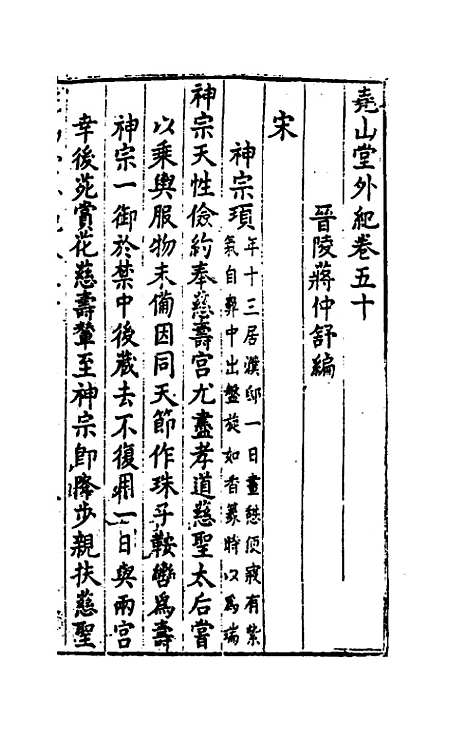 堯山堂外紀卷五十
晉陵蔣仲舒編
宋
神宗頊年十三居濮邸一日晝憇便寢有紫
氣自鼻中出盤旋如香篆時以為瑞
神宗天性儉約奉慈壽宮尤盡孝道慈聖太后嘗
以乘輿服物未備因同天節作珠子鞍轡為壽
神宗一御於禁中後藏去不復用一日與兩宮
幸後苑賞花慈壽輦至神宗即降步親扶慈聖